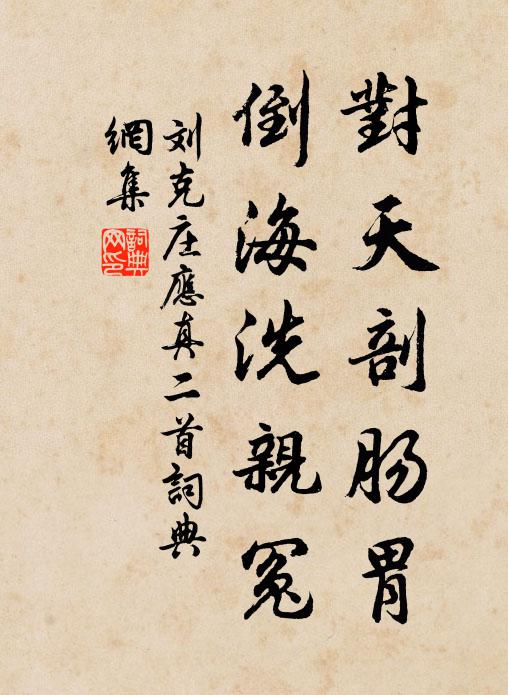 對天剖肠胃
倒海洗親冤
刘克庄應真二首詞典
網集
詞典网印